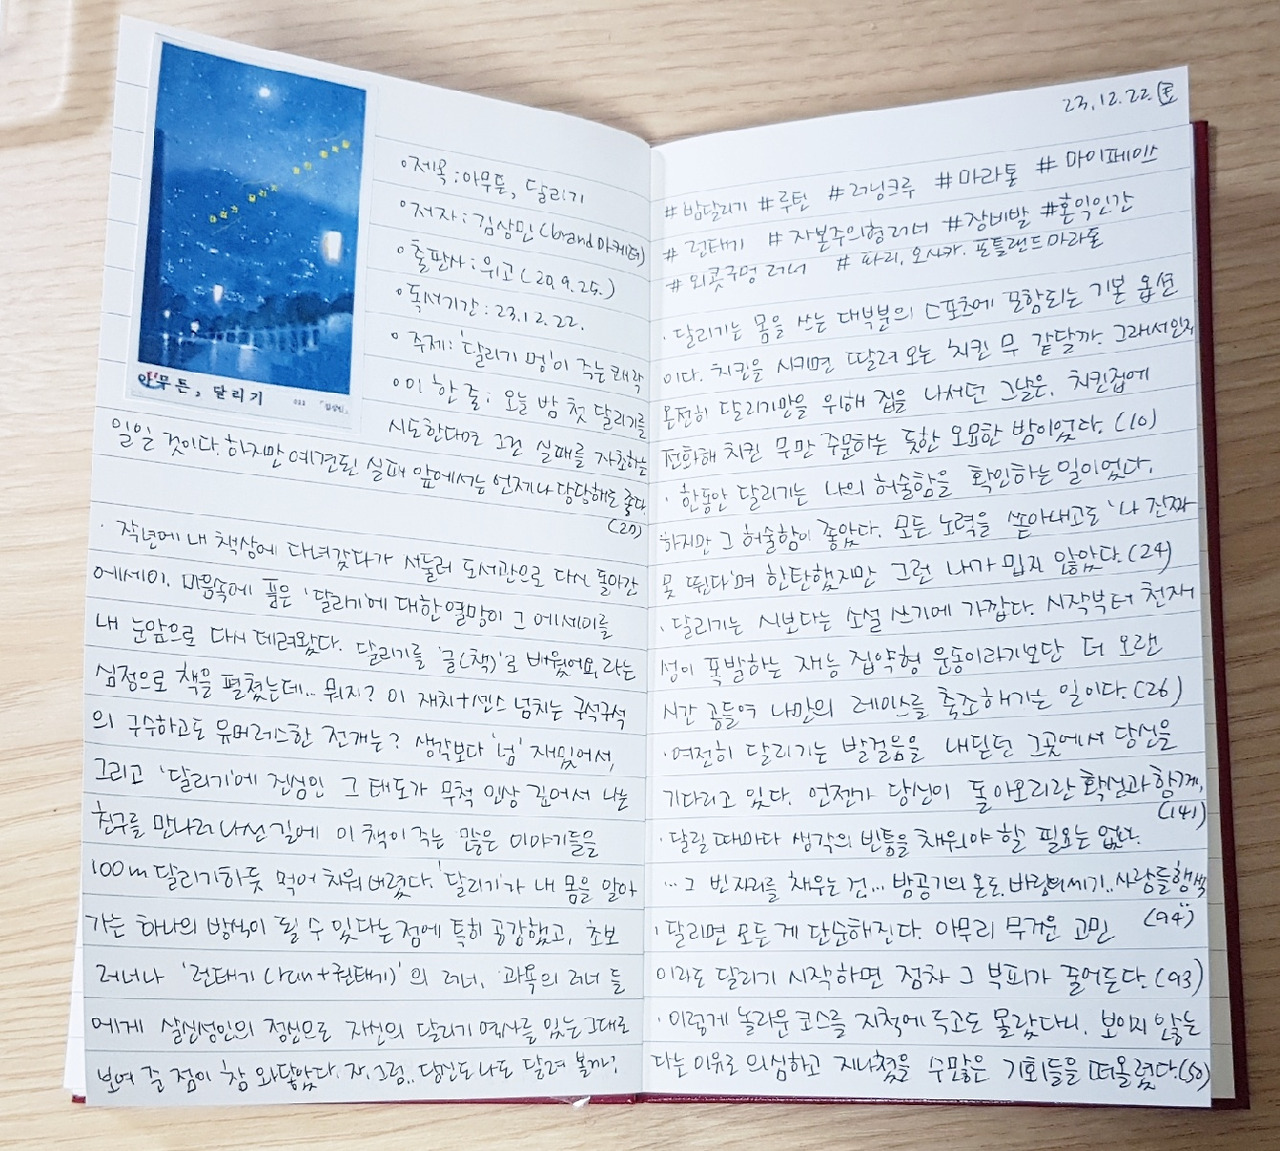 아무튼, 달리기
033
김상민
◦제목: 아무튼, 달리기
◦저자: 김상민(brand 마케터)
◦출판사: 위고(20.9.25.)
◦독서기간: 23.12.22.
◦주제: '달리기 멍'이 주는 쾌락
◦이 한 줄: 오늘 밤 첫 달리기를
시도한대도 그건 실패를 자초하는
일일 것이다. 하지만 예견된 실패 앞에서는 언제나 당당해도 좋다.
(20)
· 작년에 내 책상에 다녀갔다가 서둘러 도서관으로 다시 돌아간
에세이. 마음속에 품은 '달리기'에 대한 열망이 그 에세이를
내 눈앞으로 다시 데려왔다. 달리기를 '글(책)'로 배웠어요, 라는
심정으로 책을 펼쳤는데.. 뭐지? 이 재치+센스 넘치는 구석구석
의 구수하고도 유머러스한 전개는? 생각보다 '넘' 재밌어서,
그리고 '달리기'에 진심인 그 태도가 무척 인상 깊어서 나는
친구를 만나러 나선 길에 이 책이 주는 많은 이야기들을
100m 달리기하듯 먹어 치워 버렸다. '달리기'가 내 몸을 알아
가는 하나의 방식이 될 수 있다는 점에 특히 공감했고, 초보
러너나 '런태기(run+권태기)'의 러너, 과욕의 러너 들
에게 살신성인의 정신으로 자신의 달리기 역사를 있는 그대로
보여 준 점이 참 와닿았다. 자, 그럼.. 당신도 나도 달려 볼까?
23.12.22.金
#밤달리기 #루틴 #러닝크루 #마라톤 #마이페이스
#런태기 #자본주의형러너 #장비발 #혼익인간
#외콧구멍 러너 #파리, 오사카, 포틀랜드마라톤
· 달리기는 몸을 쓰는 대부분의 스포츠에 포함되는 기본 옵션
이다. 치킨을 시키면 딸려 오는 치킨 무 같달까. 그래서인지
온전히 달리기만을 위해 집을 나서던 그날은, 치킨집에
전화해 치킨 무만 주문하는 듯한 오묘한 밤이었다. (10)
· 한동안 달리기는 나의 허술함을 확인하는 일이었다.
하지만 그 허술함이 좋았다. 모든 노력을 쏟아내고도 '나 진짜
못 뛴다'며 한탄했지만 그런 내가 밉지 않았다. (24)
· 달리기는 시보다는 소설 쓰기에 가깝다. 시작부터 천재
성이 폭발하는 재능 집약형 운동이라기보단 더 오랜
시간 공들여 나만의 레이스를 축조해가는 일이다. (26)
· 여전히 달리기는 발걸음을 내딛던 그곳에서 당신을
기다리고 있다. 언젠가 당신이 돌아오리란 확신과 함께.
(141)
· 달릴 때마다 생각의 빈틈을 채워야 할 필요는 없다.
... 그 빈자리를 채우는 건... 밤공기의 온도, 바람의 세기.. 사람들 행색
(94)
· 달리면 모든 게 단순해진다. 아무리 무거운 고민
이라도 달리기 시작하면 점차 그 부피가 줄어든다. (93)
· 이렇게 놀라운 코스를 지척에 두고도 몰랐다니. 보이지 않는
다는 이유로 의심하고 지나쳤을 수많은 기회들을 떠올렸다. (50)